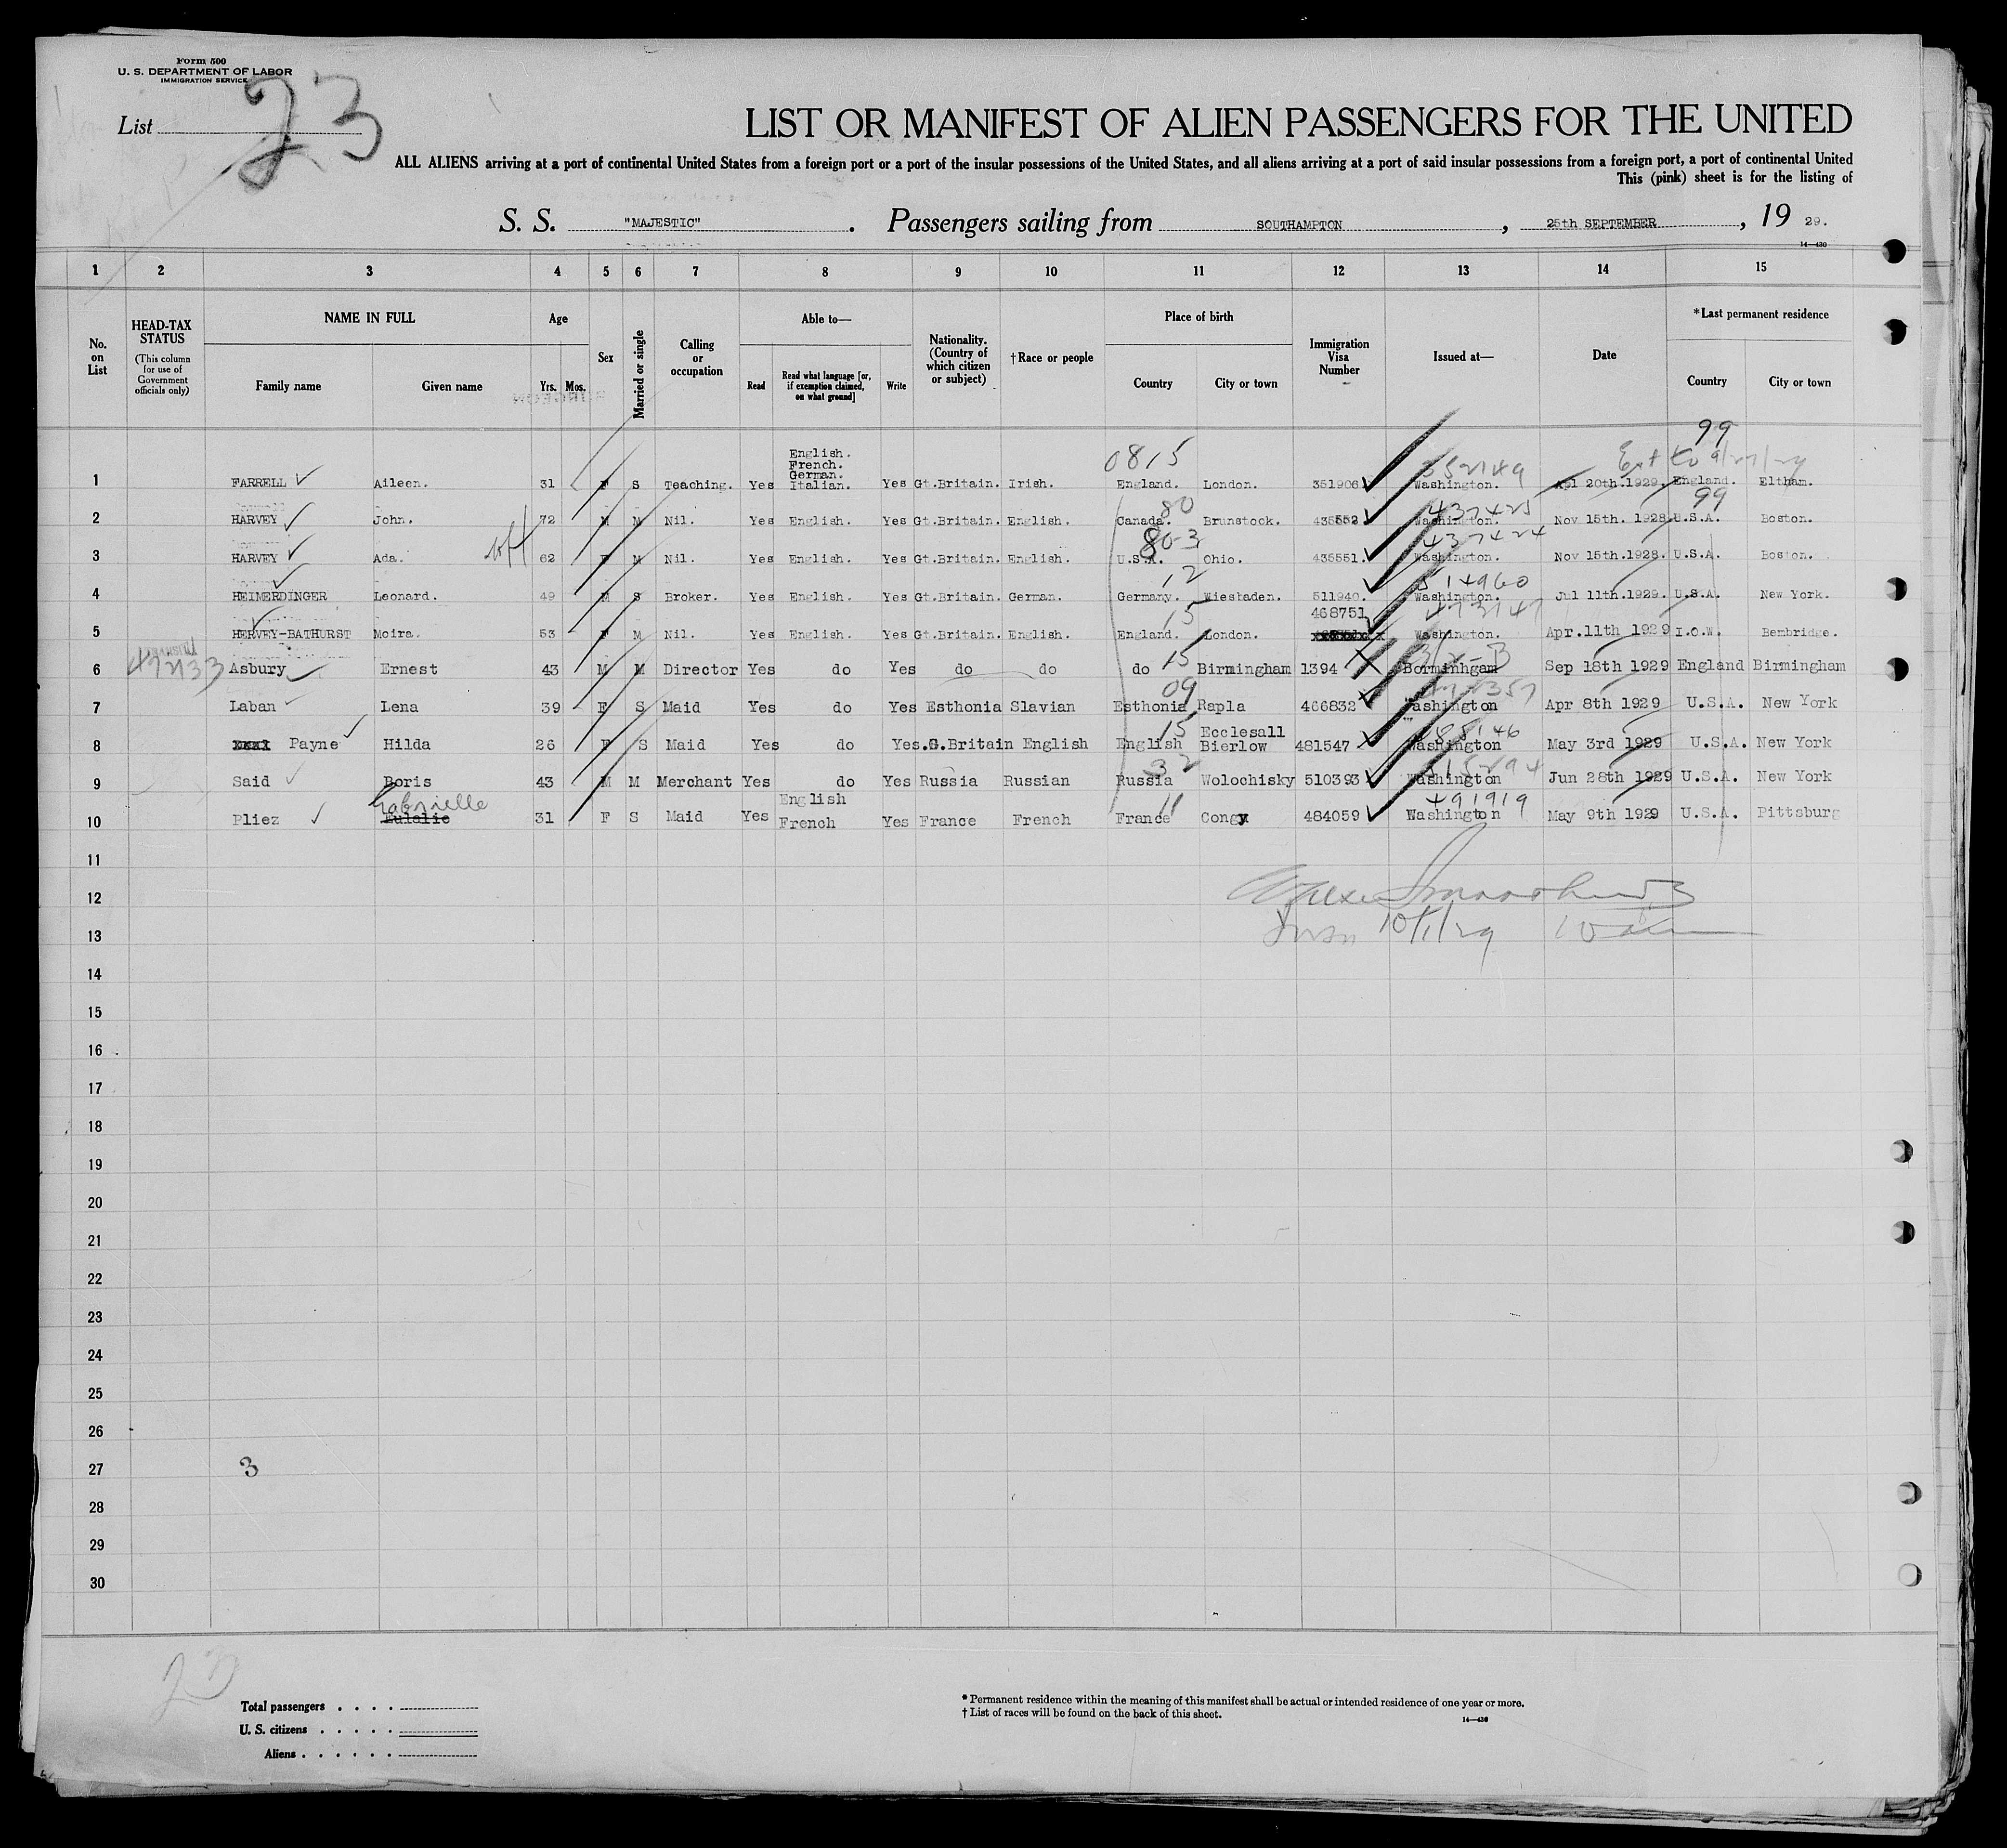 Form 500
U. S. DEPARTMENT OF LABOR
IMMIGRATION SERVICE
List 23
LIST OR MANIFEST OF ALIEN PASSENGERS FOR THE UNITED
ALL ALIENS arriving at a port of continental United States from a foreign port or a port of the insular possessions of the United States, and all aliens arriving at a port of said insular possessions from a foreign port, a port of continental United
This (pink) sheet is for the listing of
S. S. "MAJESTIC". Passengers sailing from SOUTHAMPTON, 25th SEPTEMBER, 19 29.
14—430
1 2 3 4 5 6 7 8 9 10 11 12 13 14 15
No. on List
HEAD-TAX STATUS (This column for use of Government officials only)
NAME IN FULL
Family name Given name
Age
Yrs. Mos.
Sex
Married or single
Calling or occupation
Able to—
Read Read what language [or, if exemption claimed, on what ground] Write
Nationality. (Country of which citizen or subject)
†Race or people
Place of birth
Country City or town
Immigration Visa Number
Issued at—
Date
*Last permanent residence
Country City or town
99
0815 352149 Ext to 9/27/29
1 FARRELL Aileen. 31 F S Teaching. Yes English. French. German. Italian. Yes Gt.Britain. Irish. England. London. 351906 Washington. Apl 20th.1929. England. Eltham.
80 437425 99
2 HARVEY John. 72 M M Nil. Yes English. Yes Gt.Britain. English. Canada. Brunstock. 435552 Washington. Nov 15th. 1928 U.S.A. Boston.
80-3 437424
3 HARVEY Ada. 62 F M Nil. Yes English. Yes Gt.Britain. English. U.S.A. Ohio. 435551 Washington. Nov 15th.1928. U.S.A. Boston.
12 514960
4 HEIMERDINGER Leonard. 49 M S Broker. Yes English. Yes Gt.Britain. German. Germany. Wiesbaden. 511940. Washington. Jul 11th.1929. U.S.A. New York.
15 468751 473147
5 HERVEY-BATHURST Moira. 53 F M Nil. Yes English. Yes Gt.Britain. English. England. London. Washington. Apr.11th 1929 I.O.W. Bembridge.
492133 15
6 Asbury Ernest 43 M M Director Yes do Yes do do do Birmingham 1394 Borminhgam Sep 18th 1929 England Birmingham
09
7 Laban Lena 39 F S Maid Yes do Yes Esthonia Slavian Esthonia Rapla 466832 Washington Apr 8th 1929 U.S.A. New York
15
8 Payne Hilda 26 F S Maid Yes do Yes.G.Britain English English Ecclesall Bierlow 481547 Washington May 3rd 1929 U.S.A. New York
32 515294
9 Said Boris 43 M M Merchant Yes do Yes Russia Russian Russia Wolochisky 510393 Washington Jun 28th 1929 U.S.A. New York
Gabrielle 11 491919
10 Pliez Eulalie 31 F S Maid Yes English French Yes France French France Congy 484059 Washington May 9th 1929 U.S.A. Pittsburg
11
12
13 10/1/29
14
15
16
17
18
19
20
21
22
23
24
25
26
27 3
28
29
30
23
Total passengers
U. S. citizens
Aliens
* Permanent residence within the meaning of this manifest shall be actual or intended residence of one year or more.
† List of races will be found on the back of this sheet.
14—430